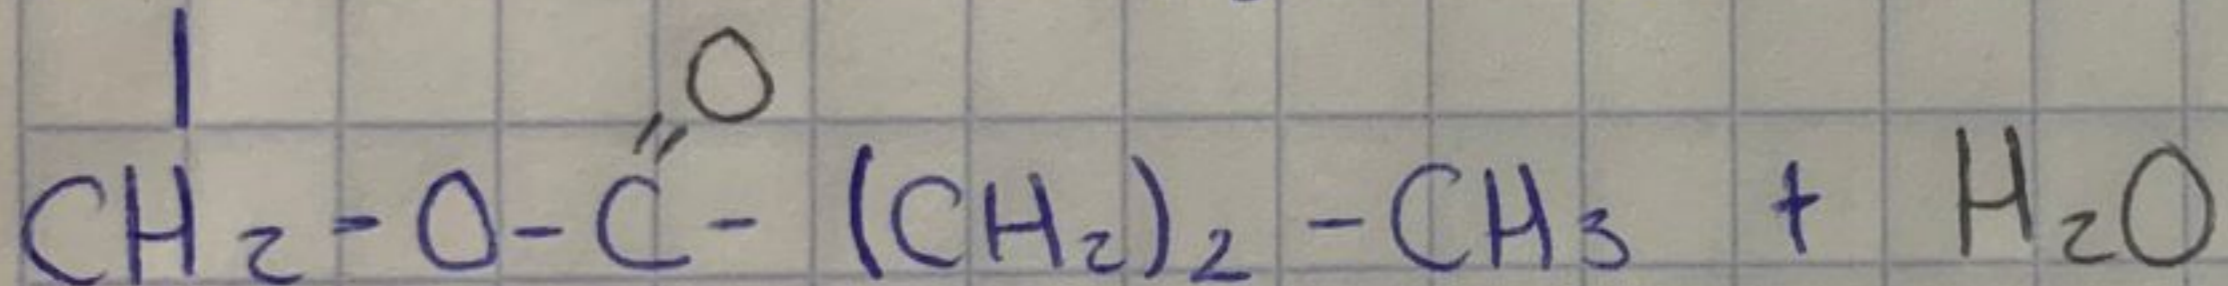 O
CH2-O-C-(CH2)2-CH3 + H2O